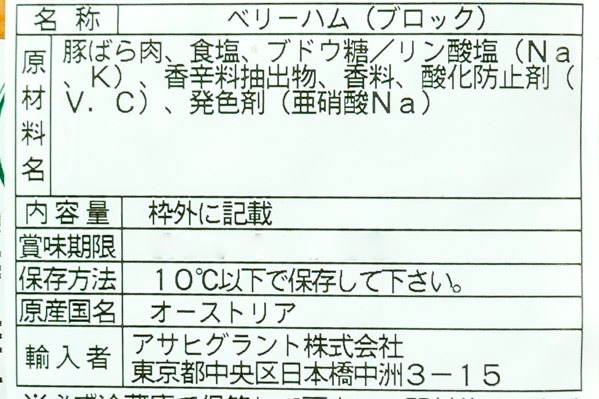 名称 ベリーハム(ブロック)
原材料名 豚ばら肉、食塩、ブドウ糖/リン酸塩(Na
、K)、香辛料抽出物、香料、酸化防止剤(
V.C)、発色剤(亜硝酸Na)
内容量 枠外に記載
賞味期限
保存方法 10℃以下で保存して下さい。
原産国名 オーストリア
輸入者 アサヒグラント株式会社
東京都中央区日本橋中洲3-15